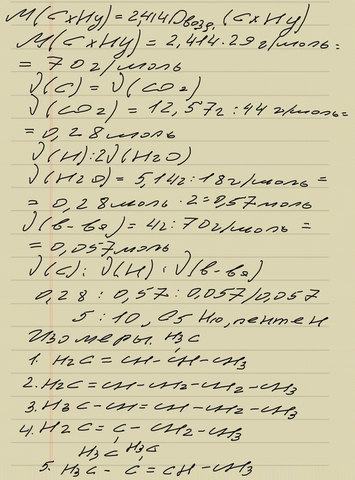 M(CxHy) = 2,414 Dвозд. (CxHy)
M(CxHy) = 2,414·29 г/моль =
= 70 г/моль
ν(C) = ν(CO2)
ν(CO2) = 12,57г : 44 г/моль =
= 0,28 моль
ν(H):2ν(H2O)
ν(H2O) = 5,14г : 18г/моль =
= 0,28 моль · 2 = 0,57моль
ν(в-ва) = 4г : 70г/моль =
= 0,057моль
ν(C) : ν(H) : ν(в-ва)
0,28 : 0,57 : 0,057/0,057
5 : 10, C5H10, пентен
Изомеры. H3C
1. H2C=CH-CH-CH3
2. H2C=CH-CH2-CH2-CH3
3. H3C-CH=CH-CH2-CH3
4. H2C=C-CH2-CH3
H3C H3C
5. H3C-C=CH-CH3